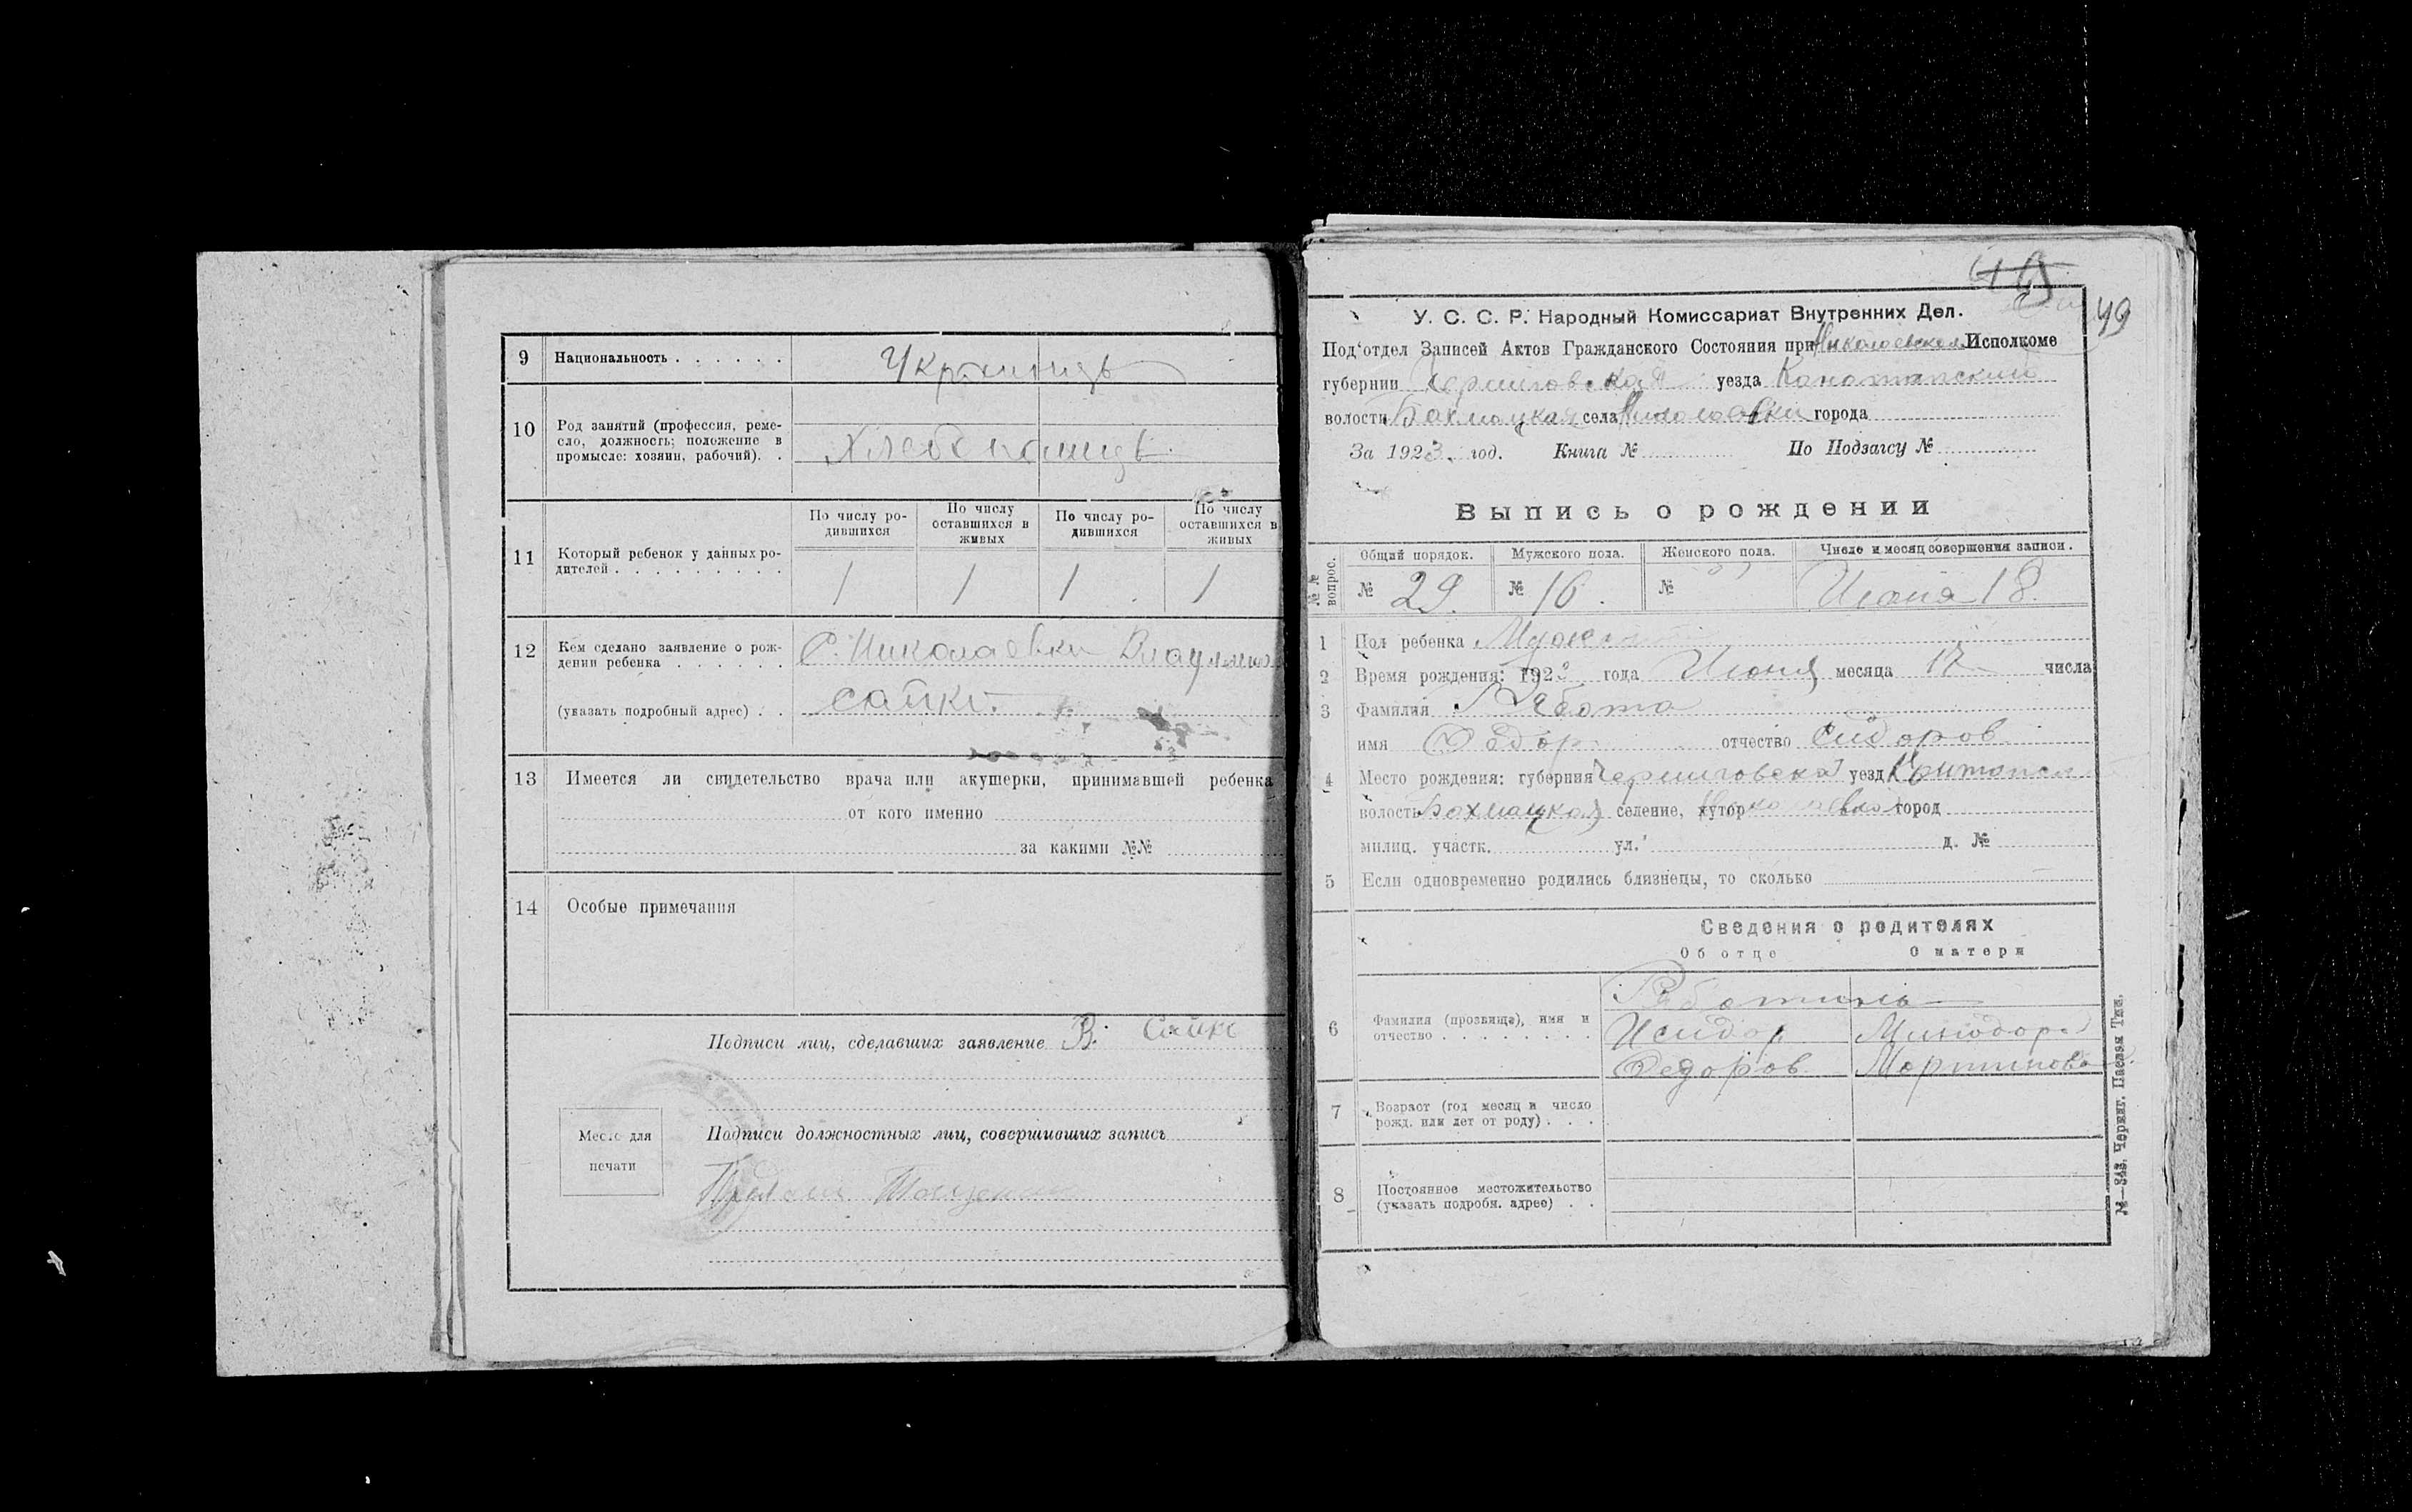 9 Национальность . . . . . . Украинцъ
10 Род занятий (профессия, реме-
сло, должность; положение в
промысле: хозяин, рабочий). . Хлебопашцъ
По числу ро-
дившихся
По числу
оставшихся в
живых
По числу ро-
дившихся
По числу
оставшихся в
живых
11 Который ребенок у данных ро-
дителей . . . . . . . . . 1 1 1 1
12 Кем сделано заявление о рож-
дении ребенка . . . . . . С. Николаевки
(указать подробный адрес) . . Сайко.
13 Имеется ли свидетельство врача или акушерки, принимавшей ребенка
от кого именно
за какими №№
14 Особые примечания
Подписи лиц, сделавших заявление В. Сайко
Подписи должностных лиц, совершивших запись
Место для
печати
49
У. С. С. Р. Народный Комиссариат Внутренних Дел.
Под'отдел Записей Актов Гражданского Состояния при Николаевском Исполкоме
губернии Черниговская уезда Конотопский
волости Бахмацкая села Николаевки города
За 1923 год. Книга № По Подзагсу №
Выпись о рождении
№№ вопрос. Общий порядок. Мужского пола. Женского пола. Число и месяц совершения записи.
№ 29. № 16. № Июня 18.
1 Пол ребенка Мужской
2 Время рождения: 1923 года Июня месяца 17 числа
3 Фамилия Рябота
имя Федор отчество Сидоров
4 Место рождения: губерния Черниговская уезд
волость Бахмацкая селение, хутор Николаевка город
милиц. участк. ул. д. №
5 Если одновременно родились близнецы, то сколько
Сведения о родителях
Об отце О матери
6 Фамилия (прозвище), имя и
отчество . . . . . . . .
Исидор Минодора
Федоров Мартинова
7 Возраст (год месяц и число
рожд. или лет от роду) . . .
8 Постоянное местожительство
(указать подробн. адрес) . .